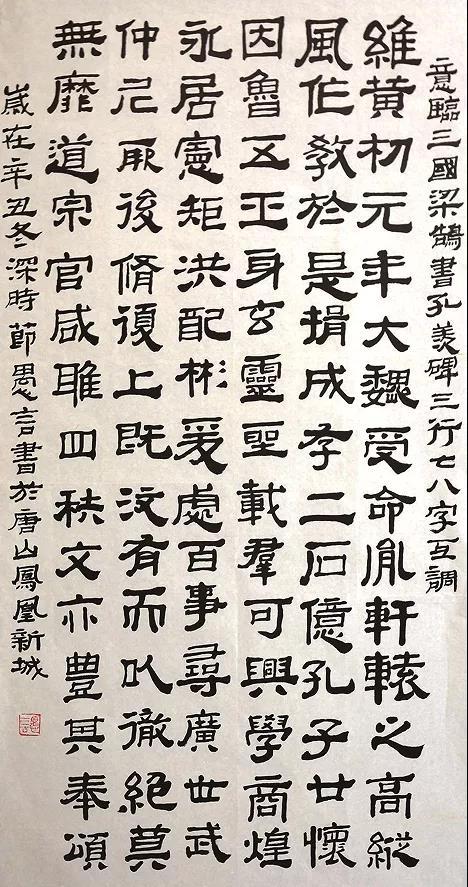 意臨三國梁鵠書孔羨碑三行七八字互調
維黄初元年大魏受命胤軒轅之高縱
風作教於是揖成孝二石億孔子廿懷
因魯五王身玄靈聖載羣可興學商煌
永居憲矩洪配彬爰處百事尋廣世武
仲尼取後脩復上既汶有而以徹絕莫
無靡道宗官咸雎四秩文亦豊其奉頌
歲在辛丑冬深時節愚言書於唐山鳳凰新城